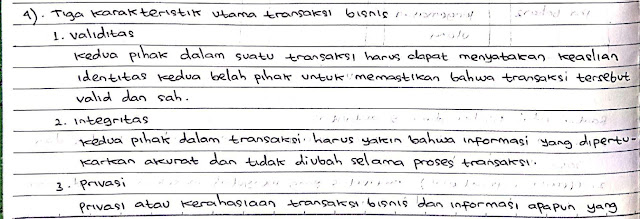 4). Tiga karakteristik utama transaksi bisnis
1. Validitas
Kedua pihak dalam suatu transaksi harus dapat menyatakan keaslian
identitas kedua belah pihak untuk memastikan bahwa transaksi tersebut
valid dan sah.
2. Integritas
Kedua pihak dalam transaksi harus yakin bahwa informasi yang dipertu-
karkan akurat dan tidak diubah selama proses transaksi.
3. Privasi
Privasi atau kerahasiaan transaksi bisnis dan informasi apapun yang